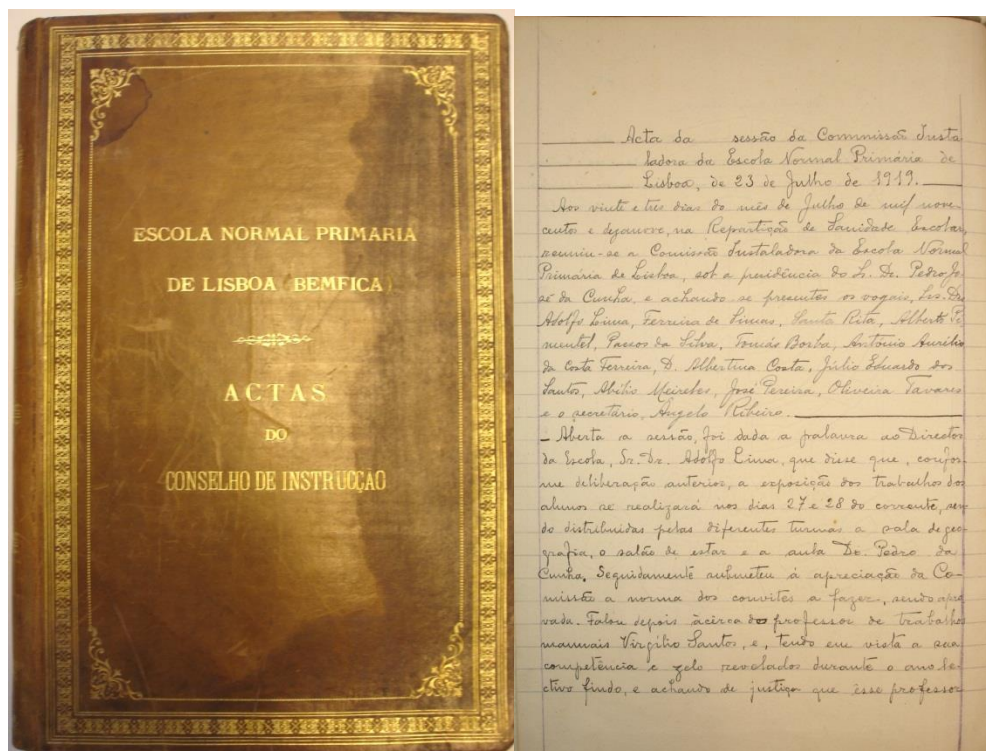 ESCOLA NORMAL PRIMARIA
DE LISBOA (BEMFICA)
ACTAS
DO
CONSELHO DE INSTRUCÇÃO
Acta da sessão da Commissão Insta
ladora da Escola Normal Primária de
Lisboa, de 23 de Julho de 1919.
Aos vinte e tres dias do mês de Julho de mil nove-
centos e dezanove, na Repartição de Sanidade Escolar,
reuniu-se a Comissão Instaladora da Escola Normal
Primária de Lisboa, sob a presidência do Sr. Dr. Pedro Jo-
sé da Cunha, e achando se presentes os vogais, Srs. Drs.
Adolfo Lima, Ferreira de Simas, Santa Rita, Alberto Pi-
mentel, Passos da Silva, Tomás Borba, António Aurélio
da Costa Ferreira, D. Albertina Costa, Júlio Eduardo dos
Santos, Abílio Meireles, José Pereira, Oliveira Tavares
e o secretário, Ângelo Ribeiro.
– Aberta a sessão, foi dada a palavra ao Director
da Escola, Sr. Dr. Adolfo Lima, que disse que, confor-
me deliberação anterior, a exposição dos trabalhos dos
alunos se realizará nos dias 27 e 28 do corrente, sen-
do distribuidas pelas diferentes turmas a sala de geo-
grafia, o salão de estar e a aula Dr. Pedro da
Cunha. Seguidamente submeteu á apreciação da Co-
missão a norma dos convites a fazer, sendo apro
vada. Falou depois àcerca do professor de trabalhos
manuais Virgílio Santos, e, tendo em vista a sua
competência e zelo revelados durante o ano le-
ctivo findo, e achando de justiça que êsse professor